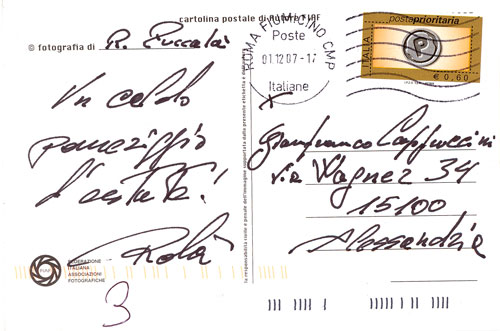 cartolina postale di Autore FIAF
© fotografia di R. Puccalà
Un caldo
pomeriggio
d'estate!
Rolà
FEDERAZIONE
ITALIANA
ASSOCIAZIONI
FOTOGRAFICHE
FIAF
3
la responsabilità civile e penale dell'immagine supportata dalla presente etichetta è dell'autore
ROMA FIUMICINO CMP
Poste
01.12.07-17
Italiane
postaprioritaria
ITALIA
P
€ 0,60
Gianfranco Cappuccini
via Wagner 34
15100
Alessandria